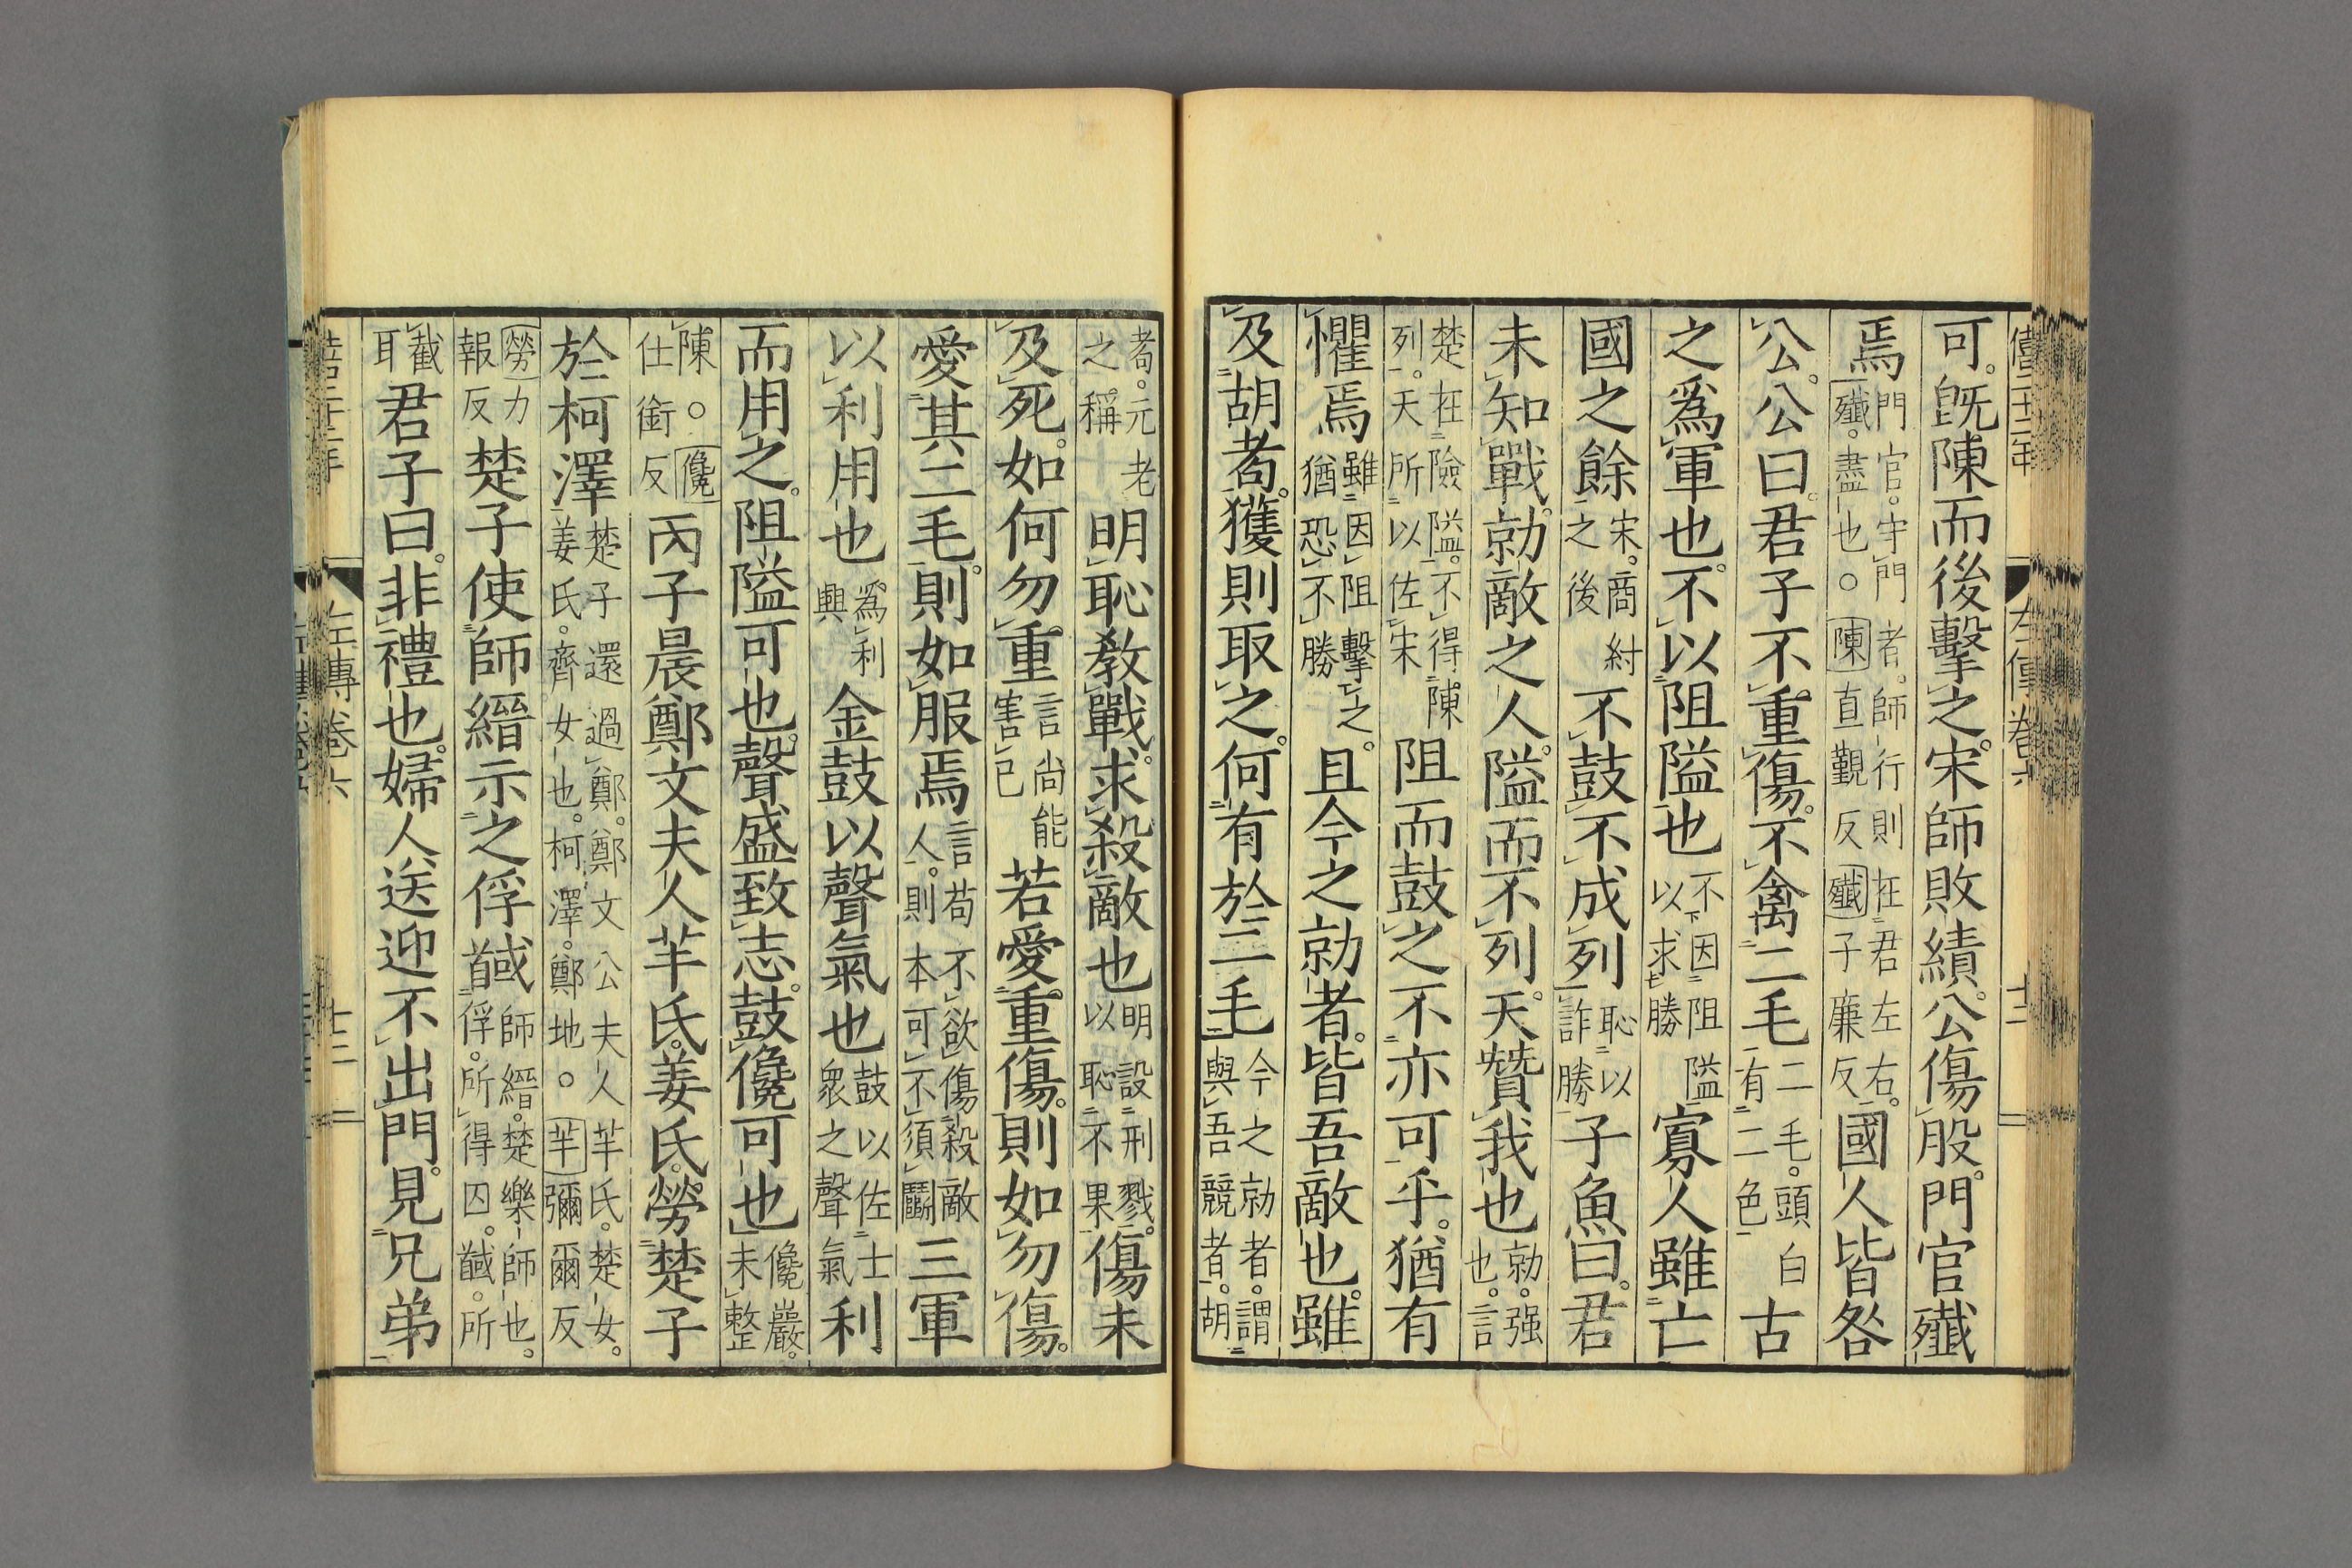 可。旣陳而後擊之。宋師敗績。公傷股。門官殲
焉門官。守門者。師行則在君左右。殲。盡也○陳直覲反殲子廉反國人皆咎
公。公曰。君子不重傷。不禽二毛二毛。頭白有二色古
之爲軍也。不以阻隘也不因阻隘以求勝寡人雖亡
國之餘宋。商紂之後不鼓不成列恥以詐勝子魚曰。君
未知戰。勍敵之人。隘而不列。天贊我也勍。强也。言
楚在險隘。不得陳列。天所以佐宋阻而鼓之。不亦可乎。猶有
懼焉雖因阻擊之。猶恐不勝且今之勍者。皆吾敵也。雖
及胡耉。獲則取之。何有於二毛今之勍者。謂與吾競者。胡
耉。元老之稱明恥敎戰。求殺敵也明設刑戮。以恥不果傷未
及死。如何勿重言尚能害己若愛重傷。則如勿傷。
愛其二毛。則如服焉言苟不欲傷殺敵人。則本可不須鬭三軍
以利用也爲利興金鼓以聲氣也鼓以佐士衆之聲氣利
而用之。阻隘可也。聲盛致志。鼓儳可也儳巖。未整
陳○儳仕銜反丙子晨鄭文夫人羋氏。姜氏。勞楚子
於柯澤楚子還過鄭。鄭文公夫人羋氏。楚女。姜氏。齊女也。柯澤。鄭地。○羋彌爾反
勞力報反楚子使師縉示之俘馘師縉。楚樂師也。俘。所得囚。馘。所
截耳君子曰。非禮也。婦人送迎不出門。見兄弟
左傳卷六
十三